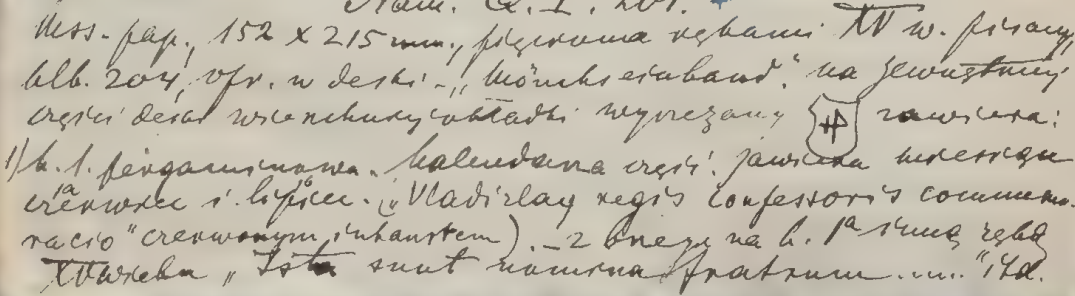 Nam. Q. I. 201.
Mss. pap., 152 x 215 mm., pięcioma rękami XV w. pisany,
klb. 204, opr. w deski - „Mönchseinband." na zewnętrznej
części deski wierzchniej okładki wyrzezany zawiera:
1) k. 1. pergaminowa. kalendarza część. zawiera miesiące
czerwiec i lipiec. („Vladizlay regis confessoris commemo-
racio" czerwonym inkaustem). - 2 k. 1ª inną ręką
XV wieku „Ista sunt nomina fratrum ....." itd.